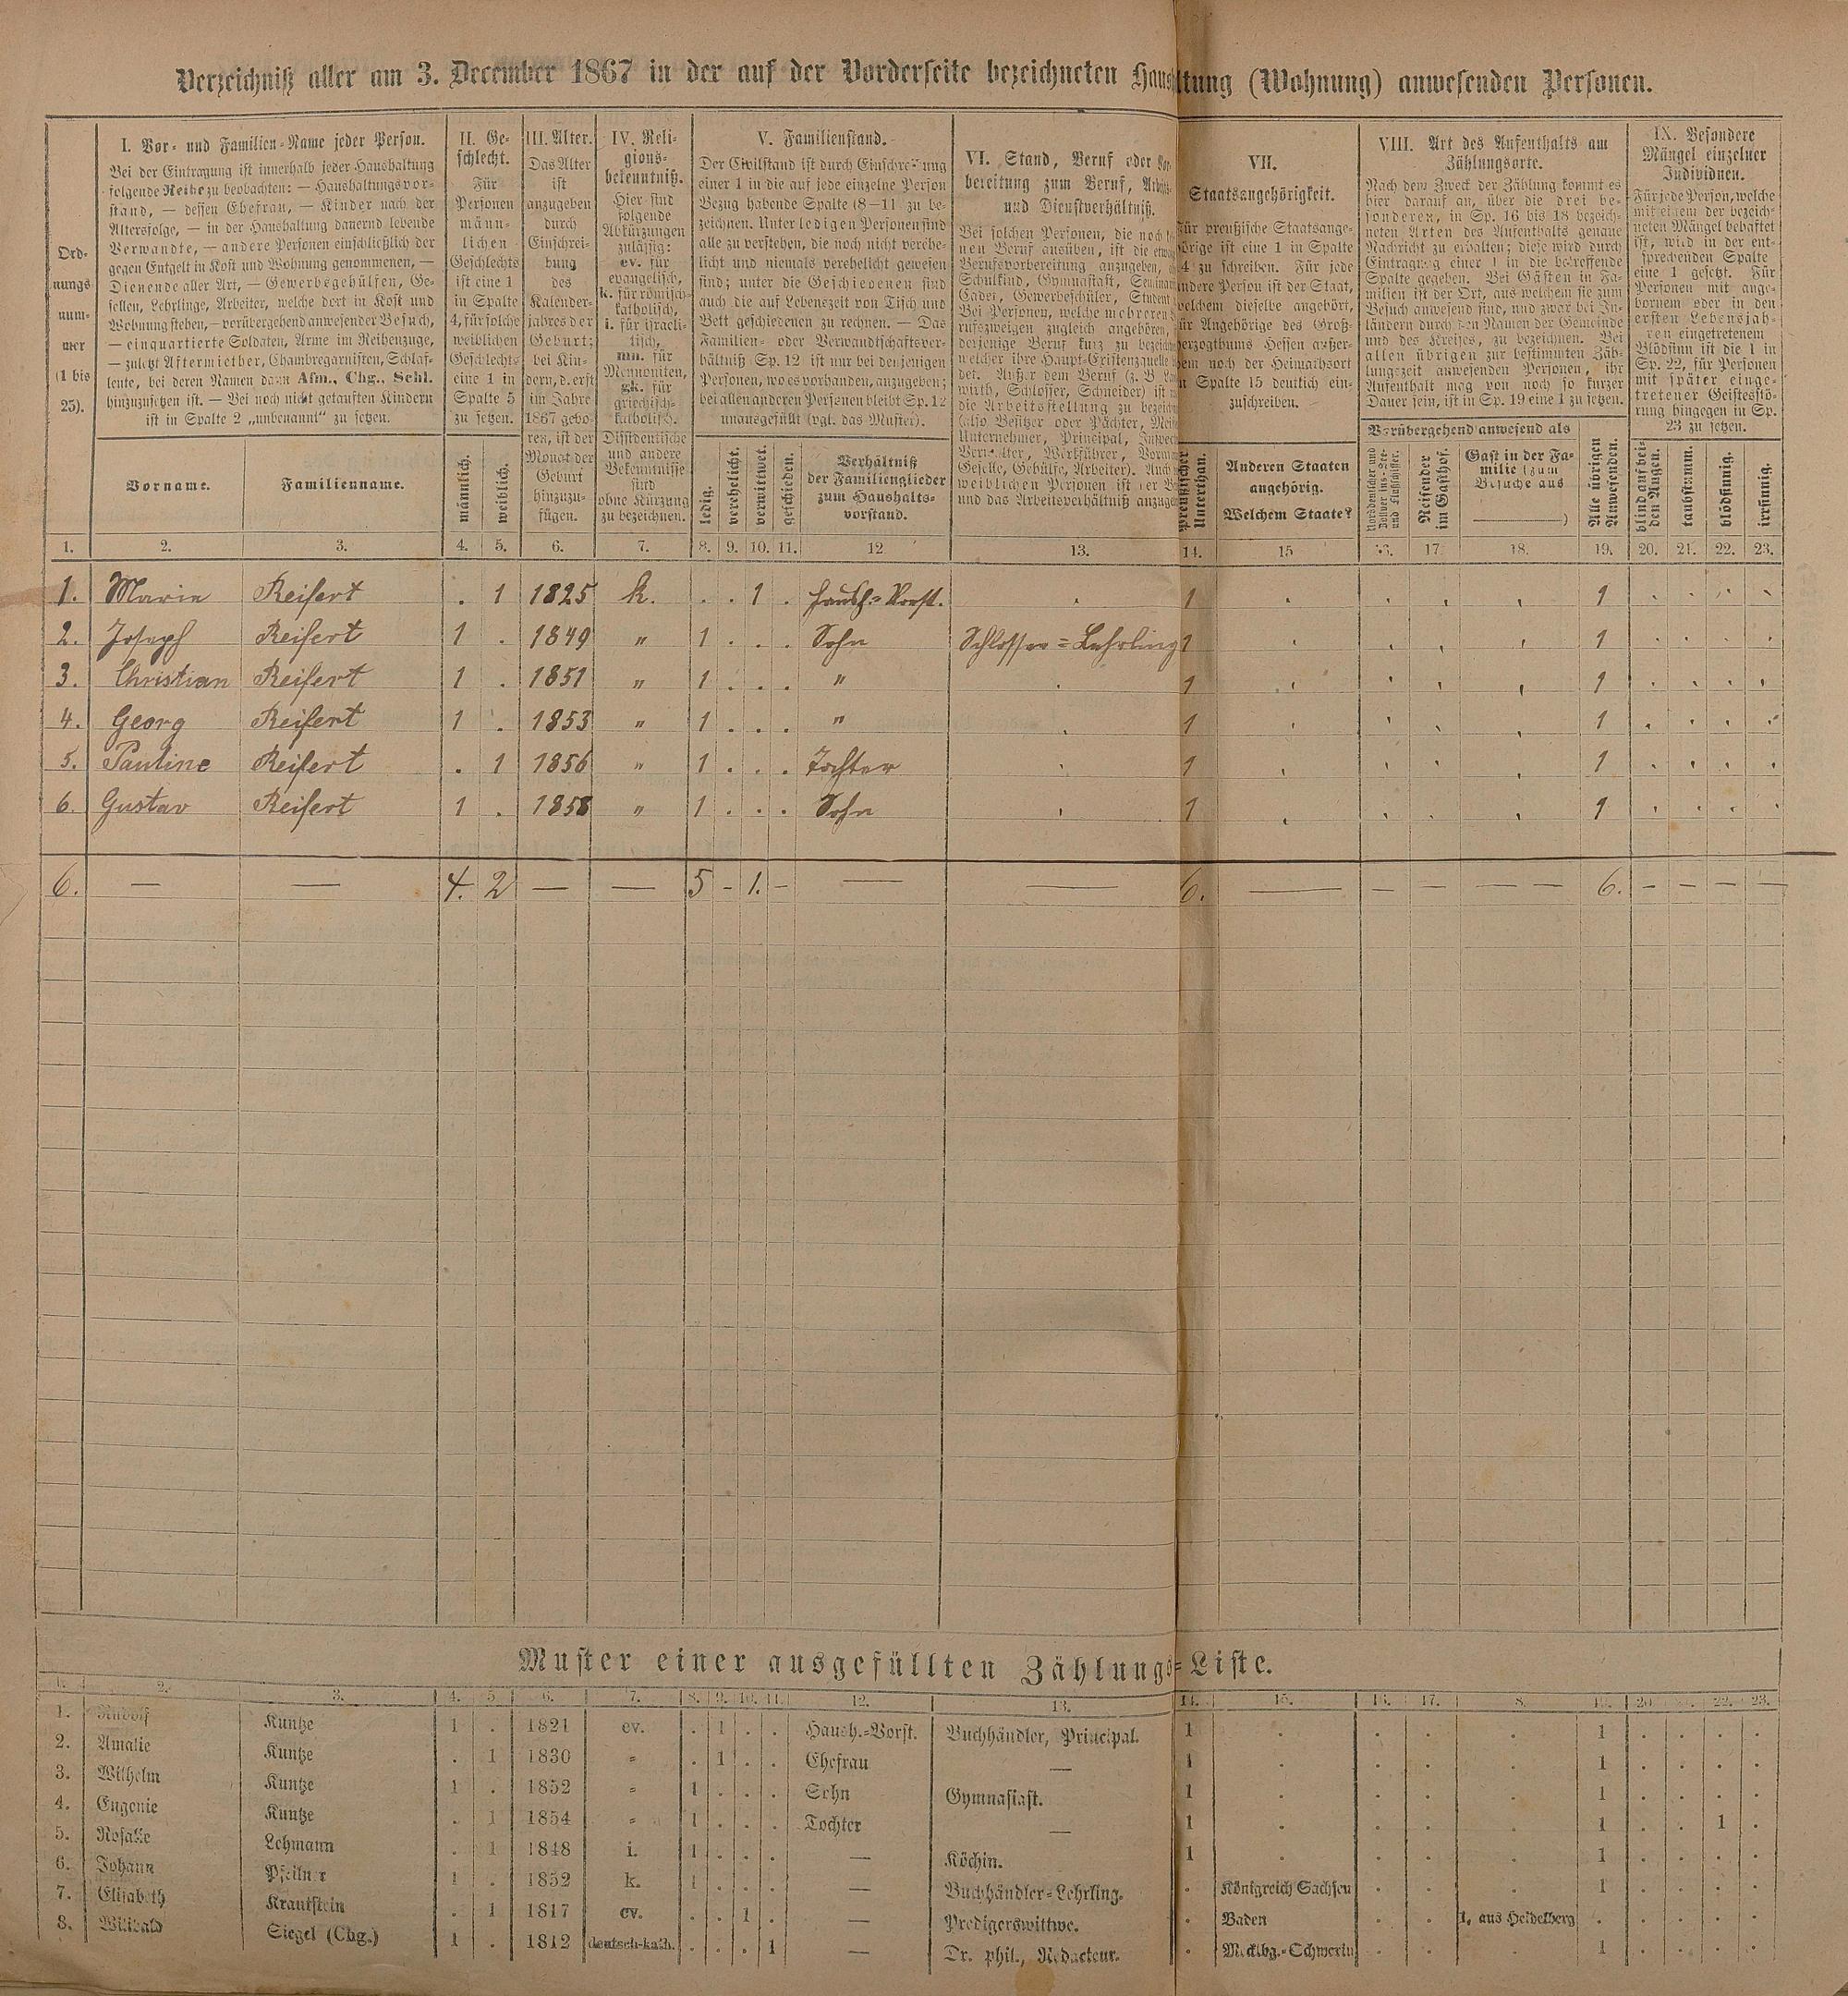 Verzeichniß aller am 3. December 1867 in der auf der Vorderseite bezeichneten Haushaltung (Wohnung) anwesenden Personen.
Ord-
nungs-
num-
mer
(1 bis
25).
I. Vor- und Familien-Name jeder Person.
Bei der Eintragung ist innerhalb jeder Haushaltung
folgende Reihe zu beobachten: — Haushaltungsvor-
stand, — dessen Ehefrau, — Kinder nach der
Altersfolge, — in der Haushaltung dauernd lebende
Verwandte, — andere Personen einschließlich der
gegen Entgelt in Kost und Wohnung genommenen, —
Dienende aller Art, — Gewerbsgehülfen, Ge-
sellen, Lehrlinge, Arbeiter, welche dort in Kost und
Wohnung stehen, — vorübergehend anwesender Besuch,
— einquartierte Soldaten, Arme im Reihenzuge,
— zuletzt Aftermiether, Chambregarnisten, Schlaf-
leute, bei deren Namen dann Afm., Chg., Schl.
hinzuzusetzen ist. — Bei noch nicht getauften Kindern
ist in Spalte 2 „unbenannt“ zu setzen.
Vorname.
Familienname.
II. Ge-
schlecht.
Für
Personen
männ-
lichen
Geschlechts
ist eine 1
in Spalte
4, für solche
weiblichen
Geschlechts
eine 1 in
Spalte 5
zu setzen.
männlich.
weiblich.
III. Alter.
Das Alter
ist
anzugeben
durch
Einschrei-
bung
des
Kalender-
jahres der
Geburt;
bei Kin-
dern, d. erst
im Jahre
1867 gebo-
ren, ist der
Monat der
Geburt
hinzuzu-
fügen.
IV. Reli-
gions-
bekenntniß.
Hier sind
folgende
Abkürzungen
zulässig:
ev. für
evangelisch,
k. für römisch-
katholisch,
i. für israeli-
tisch,
mn. für
Mennoniten,
gk. für
griechisch-
katholisch.
Dissidentische
und andere
Bekenntnisse
sind
ohne Kürzung
zu bezeichnen.
V. Familienstand.
Der Civilstand ist durch Einschreibung
einer 1 in die auf jede einzelne Person
Bezug habende Spalte (8—11) zu be-
zeichnen. Unter ledigen Personen sind
alle zu verstehen, die noch nicht verehe-
licht und niemals verehelicht gewesen
sind; unter die Geschiedenen sind
auch die auf Lebenszeit von Tisch und
Bett geschiedenen zu rechnen. — Das
Familien- oder Verwandtschaftsver-
hältniß Sp. 12 ist nur bei denjenigen
Personen, wo es vorhanden, anzugeben;
bei allen anderen Personen bleibt Sp. 12
unausgefüllt (vgl. das Muster).
ledig.
verehelicht.
verwittwet.
geschieden.
Verhältniß
der Familienglieder
zum Haushalts-
vorstand.
VI. Stand, Beruf oder Vor-
bereitung zum Beruf, Arbeits-
und Dienstverhältniß.
Bei solchen Personen, die noch
nen Beruf ausüben, ist die etwa
Berufsvorbereitung anzugeben,
Schulkind, Gymnasiast, Seminar
Cadet, Gewerbeschüler, Student
Bei Personen, welche mehreren
rufszweigen zugleich angehören,
derjenige Beruf kurz zu bezeichn
welcher ihre Haupt-Existenzquelle
det. Außer dem Beruf (z. B.
wirth, Schlosser, Schneider) ist
die Arbeitsstellung zu bezeich
(also Besitzer oder Pächter, Mei
Unternehmer, Principal, Inspect
Verwalter, Werkführer, Vorm
Geselle, Gehülfe, Arbeiter). Auch
weiblichen Personen ist der B
und das Arbeitsverhältniß anzuge
VII.
Staatsangehörigkeit.
Für preußische Staatsange-
hörige ist eine 1 in Spalte
14 zu schreiben. Für jede
andere Person ist der Staat,
welchem dieselbe angehört,
für Angehörige des Groß-
herzogthums Hessen außer-
dem noch der Heimathsort
in Spalte 15 deutlich ein-
zuschreiben.
Preußischer
Unterthan.
Anderen Staaten
angehörig.
Welchem Staate?
VIII. Art des Aufenthalts am
Zählungsorte.
Nach dem Zweck der Zählung kommt es
hier darauf an, über die drei be-
sonderen, in Sp. 16 bis 18 bezeich-
neten Arten des Aufenthalts genaue
Nachricht zu erhalten; diese wird durch
Eintragung einer 1 in die betreffende
Spalte gegeben. Bei Gästen in Fa-
milien ist der Ort, aus welchem sie zum
Besuch anwesend sind, und zwar bei In-
ländern durch den Namen der Gemeinde
und des Kreises, zu bezeichnen. Bei
allen übrigen zur bestimmten Zäh-
lungszeit anwesenden Personen, ihr
Aufenthalt mag von noch so kurzer
Dauer sein, ist in Sp. 19 eine 1 zu setzen.
Vorübergehend anwesend als
Reisender
im Gasthof.
Gast in der Fa-
milie (zum
Besuche aus
)
Alle übrigen
Anwesenden.
IX. Besondere
Mängel einzelner
Individuen.
Für jede Person, welche
mit einem der bezeich-
neten Mängel behaftet
ist, wird in der ent-
sprechenden Spalte
eine 1 gesetzt. Für
Personen mit ange-
bornem oder in den
ersten Lebensjah-
ren eingetretenem
Blödsinn ist die 1 in
Sp. 22, für Personen
mit später einge-
tretener Geistesstö-
rung hingegen in Sp.
23 zu setzen.
blind auf bei-
den Augen.
taubstumm.
blödsinnig.
irrsinnig.
1. 2. 3. 4. 5. 6. 7. 8. 9. 10. 11. 12 13. 14. 15 16. 17. 18. 19. 20. 21. 22. 23.
1. Marie Reifert . 1 1825 k. . . 1 . Haush.-Vorst. . 1 . . . . 1 . . . .
2. Joseph Reifert 1 . 1849 " 1 . . . Sohn Schlosser-Lehrling 1 . . . . 1 . . . .
3. Christian Reifert 1 . 1851 " 1 . . . " . 1 . . . . 1 . . . .
4. Georg Reifert 1 . 1853 " 1 . . . " . 1 . . . . 1 . . . .
5. Pauline Reifert . 1 1856 " 1 . . . Tochter . 1 . . . . 1 . . . .
6. Gustav Reifert 1 . 1858 " 1 . . . Sohn . 1 . . . . 1 . . . .
6. — — 4. 2 — — 5 - 1. - — — 6. — — — — 6. — — — —
Muster einer ausgefüllten Zählungs-Liste.
1. 2. 3. 4. 5. 6. 7. 8. 9. 10. 11. 12. 13. 14. 15. 16. 17. 8. 19. 20. 21. 22. 23.
1. Rudolf Kuntze 1 . 1821 ev. . 1 . . Haush.-Vorst. Buchhändler, Principal. 1 . . . . 1 . . . .
2. Amalie Kuntze . 1 1830 " . 1 . . Ehefrau — 1 . . . . 1 . . . .
3. Wilhelm Kuntze 1 . 1852 " 1 . . . Sohn Gymnasiast. 1 . . . . 1 . . . .
4. Eugenie Kuntze . 1 1854 " 1 . . . Tochter — 1 . . . . 1 . . 1 .
5. Rosalie Lehmann . 1 1848 i. 1 . . . — Köchin. 1 . . . . 1 . . . .
6. Johann Pfeilner 1 . 1852 k. 1 . . . — Buchhändler-Lehrling. . Königreich Sachsen . . . 1 . . . .
7. Elisabeth Krautstein . 1 1817 ev. . . 1 . — Predigerswittwe. . Baden . . 1, aus Heidelberg . . . . .
8. Willibald Siegel (Chg.) 1 . 1812 deutsch-kath. . . . 1 — Dr. phil., Redacteur. . Mecklbg.-Schwerin . . . 1 . . . .